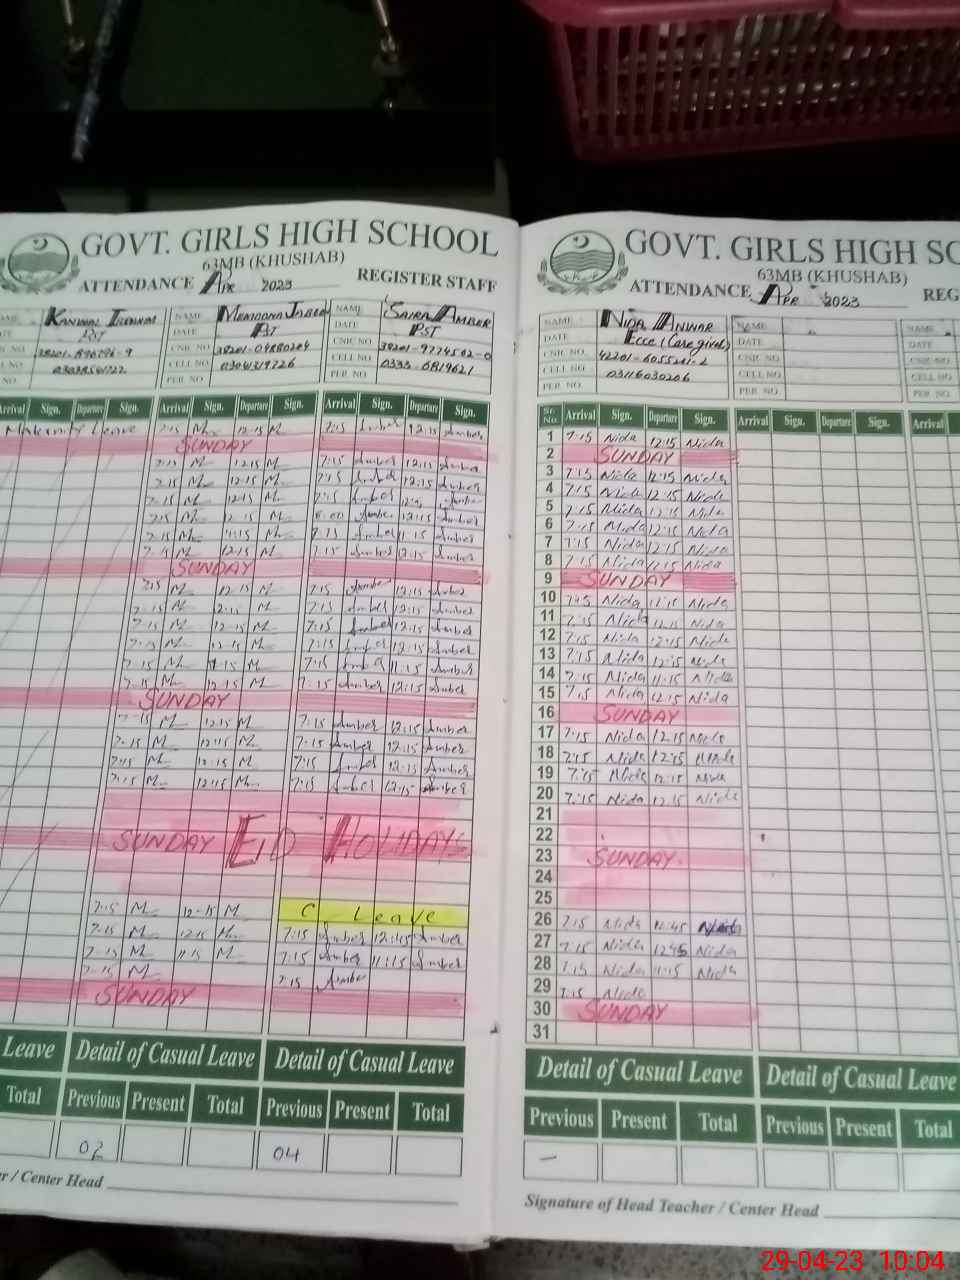 GOVT. GIRLS HIGH SCHOOL
63MB (KHUSHAB)
ATTENDANCE Apr 2023 REGISTER STAFF
NAME MEMOONA JABEEN NAME SAIRA AMBER
DATE PST DATE PST
CNIC NO. CNIC NO. 38201-9774502-0
CELL NO. 03041319726 CELL NO. 0333-6819621
PER NO. PER NO.
Arrival Sign. Departure Sign. Arrival Sign. Departure Sign. Arrival Sign. Departure Sign.
Maternity Leave 7:15 M 12:15 M 7:15 Amber 12:15 Amber
SUNDAY
7:15 M 12:15 M 7:15 Amber 12:15 Amber
7:15 M 12:15 M 7:15 Amber 12:15 Amber
7:15 M 12:15 M 7:15 Amber Amber
7:15 M 12:15 M Amber 12:15 Amber
7:15 M 11:15 M 7:15 Amber 11:15 Amber
7:15 M 12:15 M 7:15 Amber 12:15 Amber
SUNDAY
7:15 M 12:15 M 7:15 Amber 12:15 Amber
7:15 M 12:15 M 7:15 Amber 12:15 Amber
7:15 M 12:15 M 7:15 Amber 12:15 Amber
7:15 M 12:15 M 7:15 Amber 12:15 Amber
7:15 M 11:15 M 7:15 Amber 11:15 Amber
7:15 M 12:15 M 7:15 Amber 12:15 Amber
SUNDAY
7:15 M 12:15 M 7:15 Amber 12:15 Amber
7:15 M 12:15 M 7:15 Amber 12:15 Amber
7:15 M 12:15 M 7:15 Amber 12:15 Amber
7:15 M 12:15 M 7:15 Amber 12:15 Amber
SUNDAY EID HOLIDAYS
7:15 M 12:15 M C Leave
7:15 M 12:15 M 7:15 Amber 12:45 Amber
7:15 M 11:15 M 7:15 Amber 11:15 Amber
7:15 M 7:15 Amber
SUNDAY
Leave Detail of Casual Leave Detail of Casual Leave
Total Previous Present Total Previous Present Total
02 04
/ Center Head
GOVT. GIRLS HIGH SC
63MB (KHUSHAB)
ATTENDANCE Apr 2023 REG
NAME NIDA ANWAR NAME NAME
DATE Ecce (Care giver) DATE DATE
CNIC NO. 42201-6055261-2 CNIC NO. CNIC NO.
CELL NO. 03116030206 CELL NO. CELL NO.
PER NO. PER NO. PER NO.
Sr. No. Arrival Sign. Departure Sign. Arrival Sign. Departure Sign. Arrival
1 7:15 Nida 12:15 Nida
2 SUNDAY
3 7:15 Nida 12:15 Nida
4 7:15 Nida 12:15 Nida
5 7:15 Nida 12:15 Nida
6 7:15 Nida 12:15 Nida
7 7:15 Nida 12:15 Nida
8 7:15 Nida 12:15 Nida
9 SUNDAY
10 7:15 Nida 11:15 Nida
11 7:15 Nida 12:15 Nida
12 7:15 Nida 12:15 Nida
13 7:15 Nida 12:15 Nida
14 7:15 Nida 11:15 Nida
15 7:15 Nida 12:15 Nida
16 SUNDAY
17 7:15 Nida 12:15 Nida
18 7:15 Nida 12:15 Nida
19 7:15 Nida 12:15 Nida
20 7:15 Nida 12:15 Nida
21
22
23 SUNDAY
24
25
26 7:15 Nida 12:45 Nida
27 7:15 Nida 12:45 Nida
28 7:15 Nida 11:15 Nida
29 7:15 Nida
30 SUNDAY
31
Detail of Casual Leave Detail of Casual Leave
Previous Present Total Previous Present Total
—
Signature of Head Teacher / Center Head
29-04-23 10:04